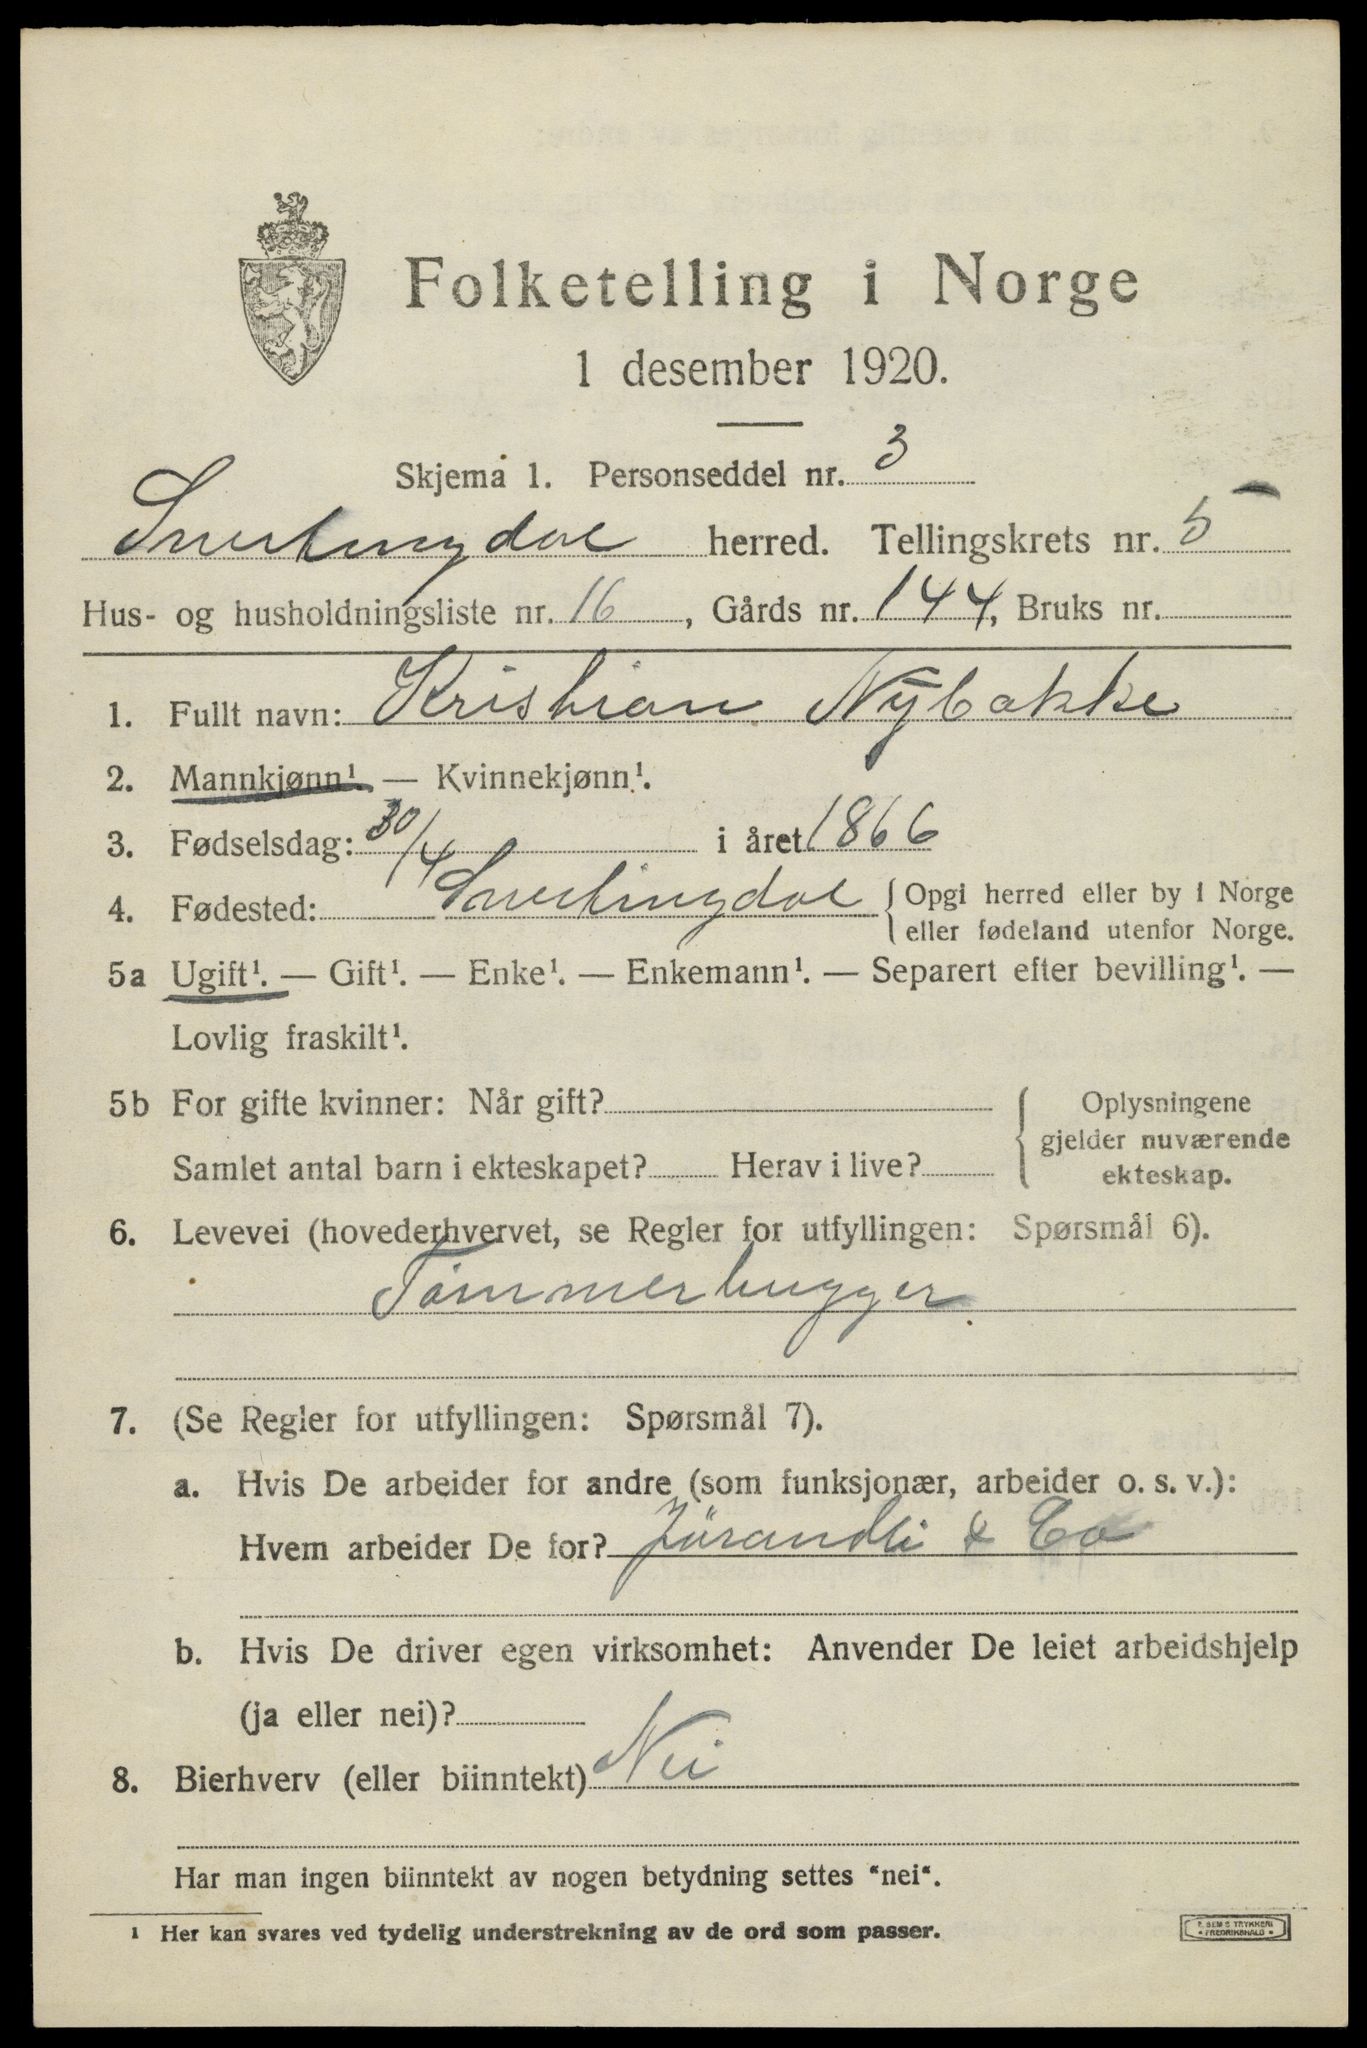 Folketelling i Norge
1 desember 1920.
Skjema 1. Personseddel nr. 3
Snertingdal herred. Tellingskrets nr. 5
Hus- og husholdningsliste nr. 16, Gårds nr. 144, Bruks nr.
1. Fullt navn: Kristian Nybakke
2. Mannkjønn¹. — Kvinnekjønn¹.
3. Fødselsdag: 30/4 i året 1866
4. Fødested: Snertingdal {Opgi herred eller by i Norge
eller fødeland utenfor Norge.
5a Ugift¹. — Gift¹. — Enke¹. — Enkemann¹. — Separert efter bevilling¹. —
Lovlig fraskilt¹.
5b For gifte kvinner: Når gift? { Oplysningene
gjelder nuværende
Samlet antal barn i ekteskapet? Herav i live? ekteskap.
6. Levevei (hovederhvervet, se Regler for utfyllingen: Spørsmål 6).
Tømmerhugger
7. (Se Regler for utfyllingen: Spørsmål 7).
a. Hvis De arbeider for andre (som funksjonær, arbeider o. s. v.):
Hvem arbeider De for? Jörandli & Co
b. Hvis De driver egen virksomhet: Anvender De leiet arbeidshjelp
(ja eller nei)?
8. Bierhverv (eller biinntekt) Nei
Har man ingen biinntekt av nogen betydning settes "nei".
¹ Her kan svares ved tydelig understrekning av de ord som passer.
SEM'S TRYKKERI
FREDRIKSHALD